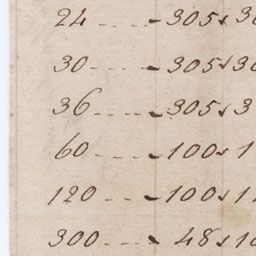 24 .... 305 s 30
30 .... 305 s 30
36 .... 305 s 3
60 .... 100 s 1
120 .... 100 s 1
300 .... 48 s 10